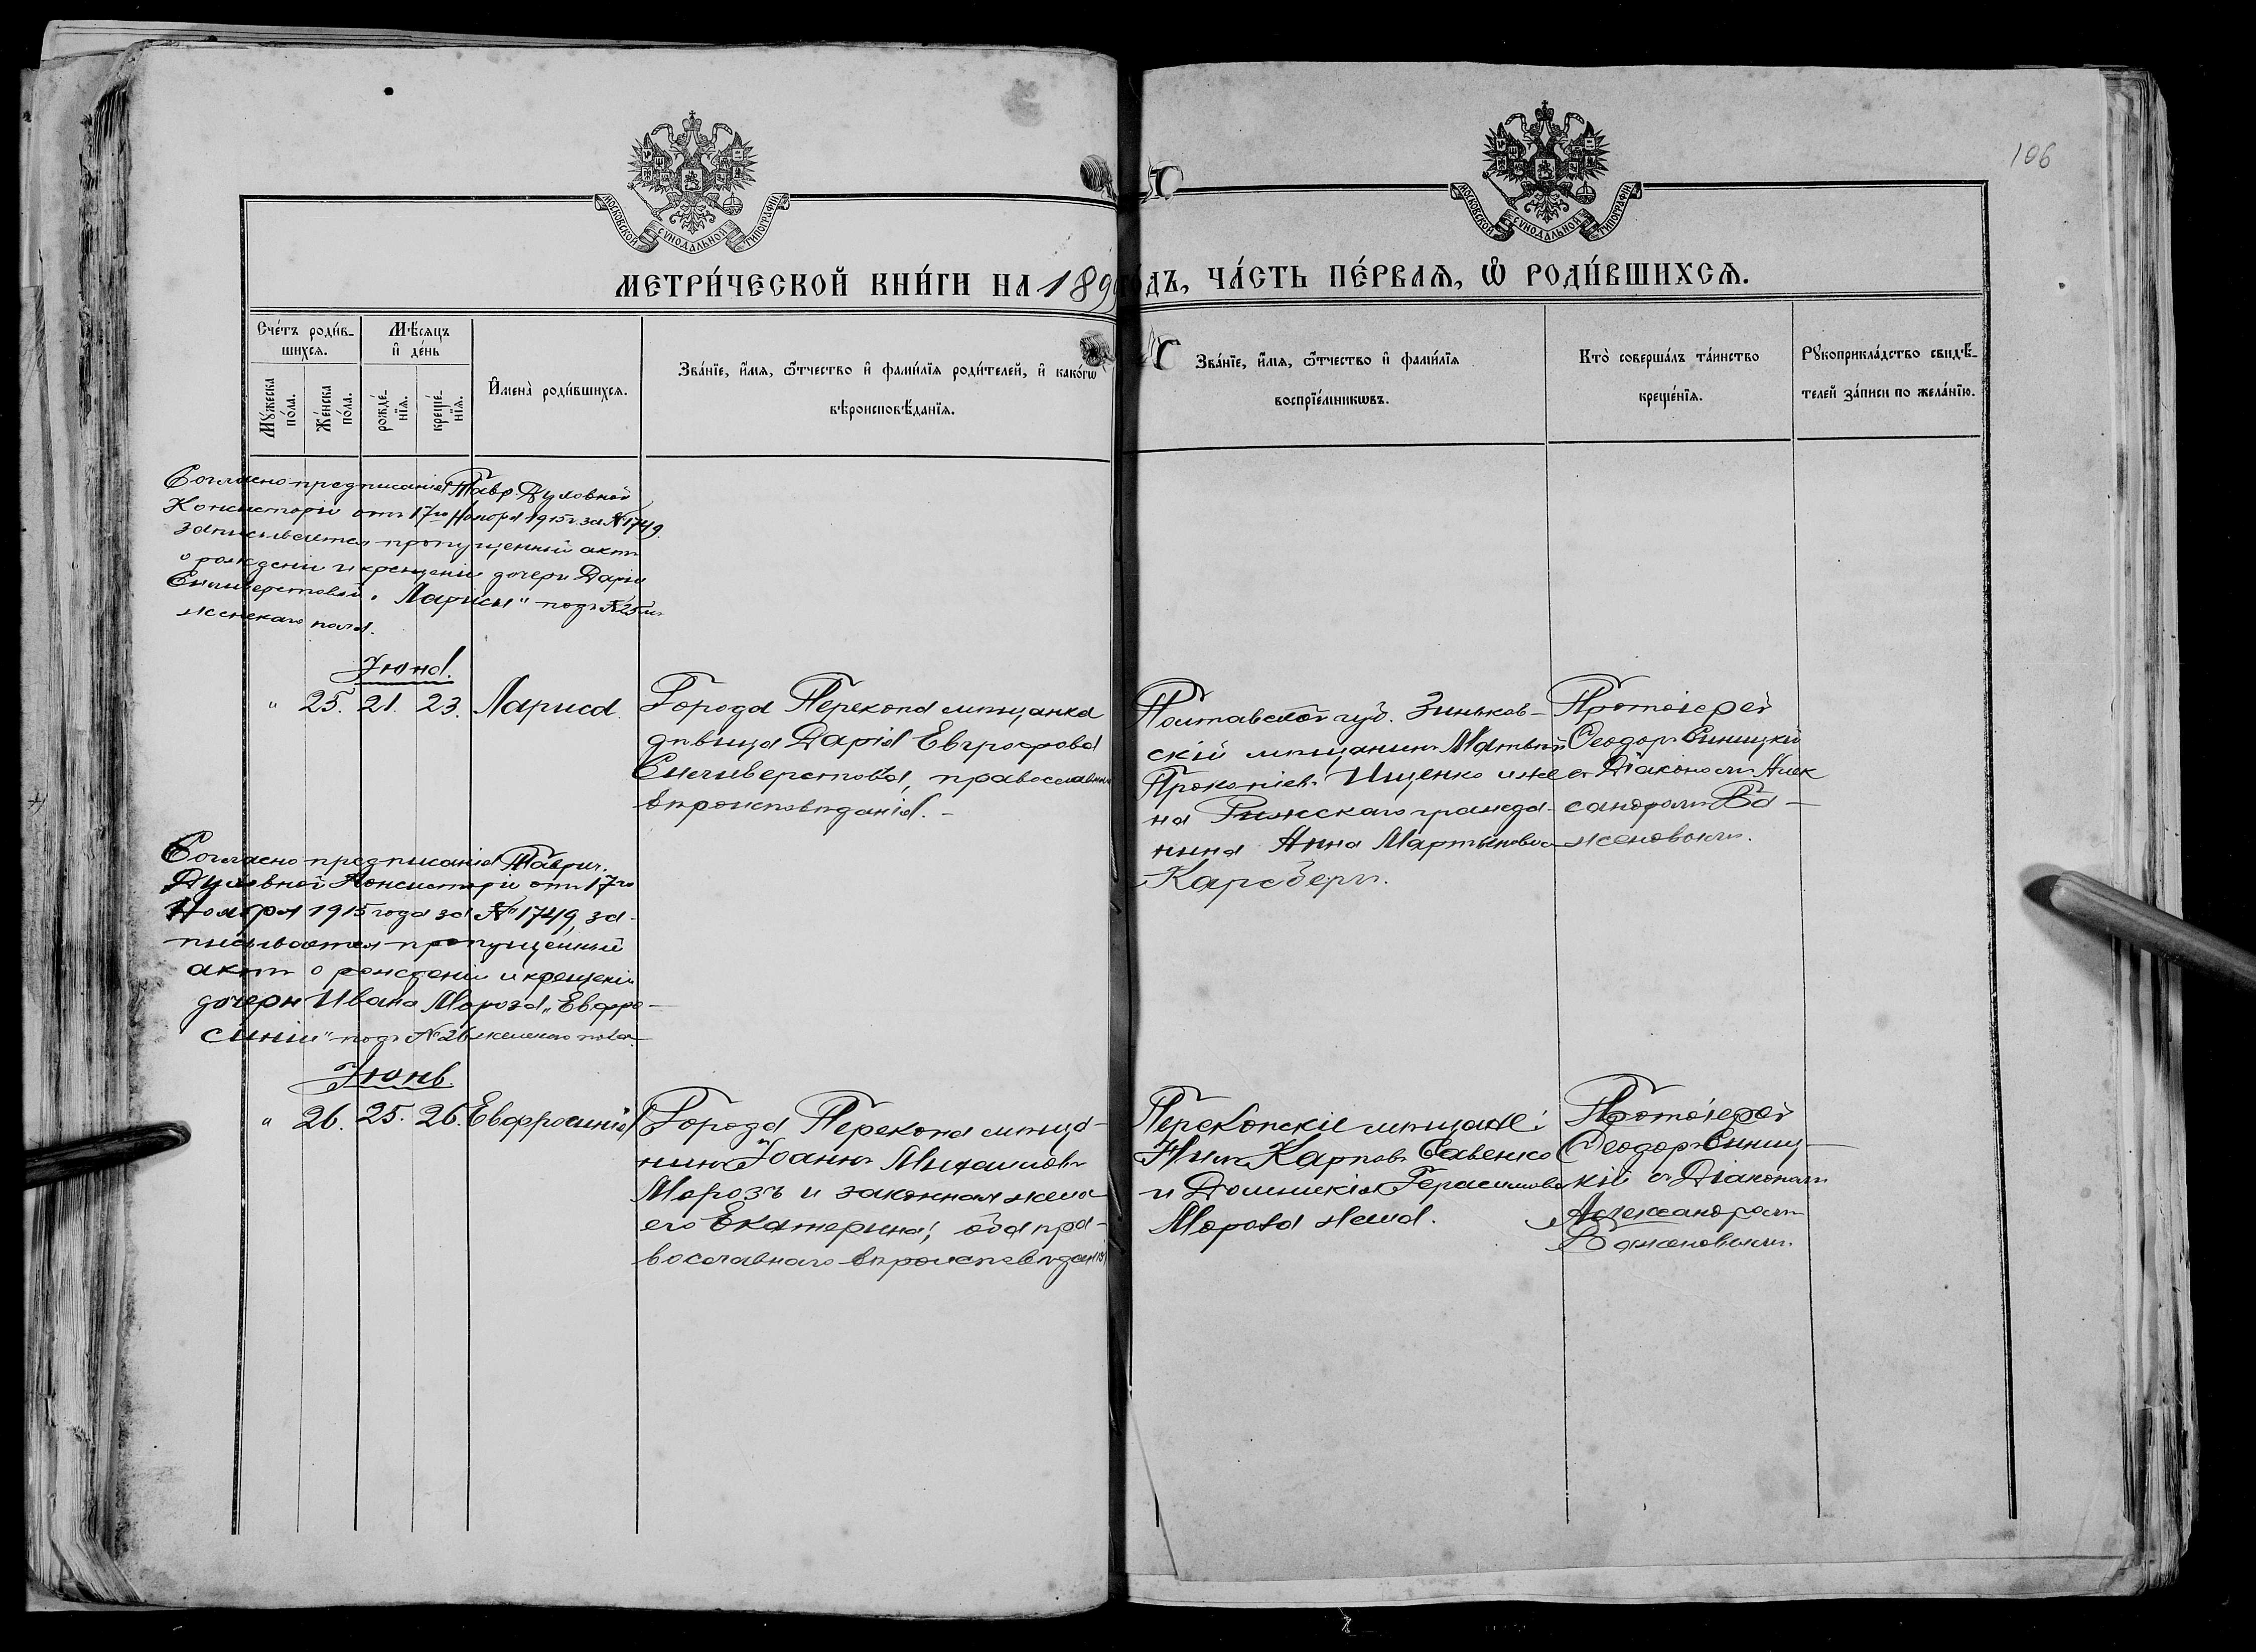 106
МОСКОВСКОЙ СѴНОДАЛЬНОЙ ТИПОГРАФІИ
МОСКОВСКОЙ СѴНОДАЛЬНОЙ ТИПОГРАФІИ
МЕТРИ́ЧЕСКОЙ КНИ́ГИ НА 189 ГО́ДЪ, ЧА́СТЬ ПЕ́РВАѦ, Ѡ҆ РОДИ́ВШИХСѦ.
Сче́тъ роди́в-
шихсѧ.
Мꙋ́жеска
по́ла.
Же́нска
по́ла.
Мѣ́сяцъ
и҆ де́нь
рожде́-
нїѧ.
креще́-
нїѧ.
И҆мена̀ роди́вшихсѧ.
Зва́нїе, и҆́мѧ, ѻ҆́тчество и҆ фами́лїѧ роди́телей, и҆ како́гѡ
вѣроисповѣ́данїѧ.
Зва́нїе, и҆́мѧ, ѻ҆́тчество и҆ фами́лїѧ
воспрїе́мникѡвъ.
Кто̀ соверша́лъ та́инство
креще́нїѧ.
Рꙋкоприкла́дство свидѣ́-
телей за́писи по жела́нїю.
Согласно предписанія Тавр. Духовной
Консисторіи отъ 17го Ноября 1915 г. за № 1749.
записывается пропущенный актъ
о рожденіи и крещеніи дочери Даріи
Силиверстовой „Ларисы" подъ № 25 м
женскаго пола.
Іюня.
" 25. 21. 23. Лариса.
Города Перекопа мѣщанка
дѣвица Дарія Евграфова
Силиверстова, православн
вѣроисповѣданія.-
Полтавской губ. Зиньков-
скій мѣщанинъ Матвѣй
Прокопіевъ Ищенко и же
на Рижскаго гражда-
нина Анна Мартынова
Карлбергъ.
Протоіерей
Ѳеодоръ Синицкій
съ Діакономъ Алек
сандромъ Ба-
женовымъ.
Согласно предписанія Таврич.
Духовной Консисторіи отъ 17го
Ноября 1915 года за № 1749, за-
писывается пропущенный
актъ о рожденіи и крещеніи
дочери Ивана Мороза „Евфро-
синіи" подъ № 26 женскаго пола.
Іюнь.
" 26. 25. 26. Евфросинія
Города Перекопа мѣща-
нинъ Іоаннъ Михаиловъ
Морозъ и законная жена
его Екатерина, оба пра-
вославнаго вѣроисповѣданія
Перекопскіе мѣщане:
Карповъ Савенко
и Домникія Герасимова
Мороза жена.
Протоіерей
Ѳеодоръ Синиц-
кій съ Діакономъ
Александромъ
Баженовымъ.